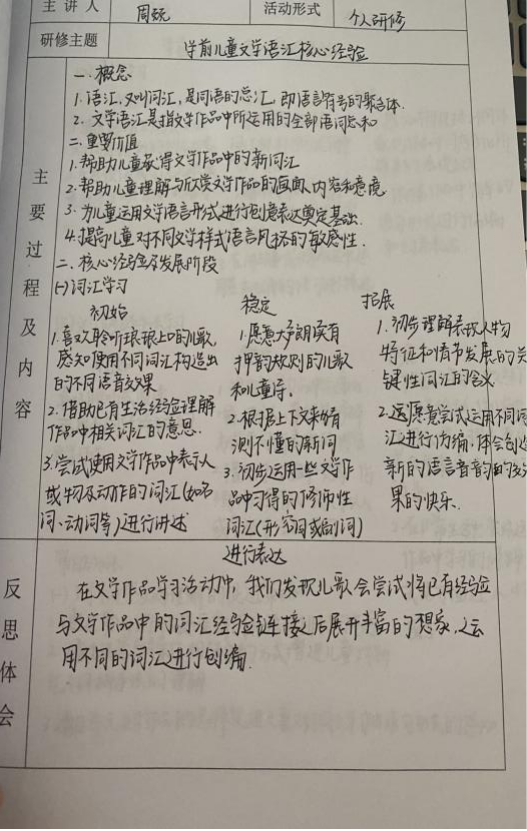 主讲人 周妧 活动形式 个人研修
研修主题 学前儿童文学语汇核心经验
主要过程及内容
一. 概念
1. 语汇, 又叫词汇, 是词语的总汇, 即语言符号的聚合体.
2. 文学语汇是指文学作品中所运用的全部语词总和
二. 重要价值
1. 帮助儿童获得文学作品中的新词汇
2. 帮助儿童理解与欣赏文学作品的画面、内容和意境
3. 为儿童运用文学语言形式进行创意表达奠定基础.
4. 提高儿童对不同文学样式语言风格的敏感性.
二. 核心经验及发展阶段
(一) 词汇学习
初始
1. 喜欢聆听琅琅上口的儿歌,
感知使用不同词汇构造出
的不同语音效果
2. 借助已有生活经验理解
作品中相关词汇的意思.
3. 尝试使用文学作品中表示人
或物及动作的词汇(如名
词、动词等)进行讲述
稳定
1. 愿意大声朗读有
押韵规则的儿歌
和儿童诗.
2. 根据上下文来猜
测不懂的新词
3. 初步运用一些文学作
品中习得的修饰性
词汇(形容词或副词)
进行表达
拓展
1. 初步理解表现人物
特征和情节发展的关
键性词汇的含义
2. 还愿意尝试运用不同词
汇进行仿编, 体会创造
新的语言音韵
果的快乐.
反思体会
在文学作品学习活动中, 我们发现儿歌会尝试将已有经验
与文学作品中的词汇经验链接, 后展开丰富的想象, 运
用不同的词汇进行创编.